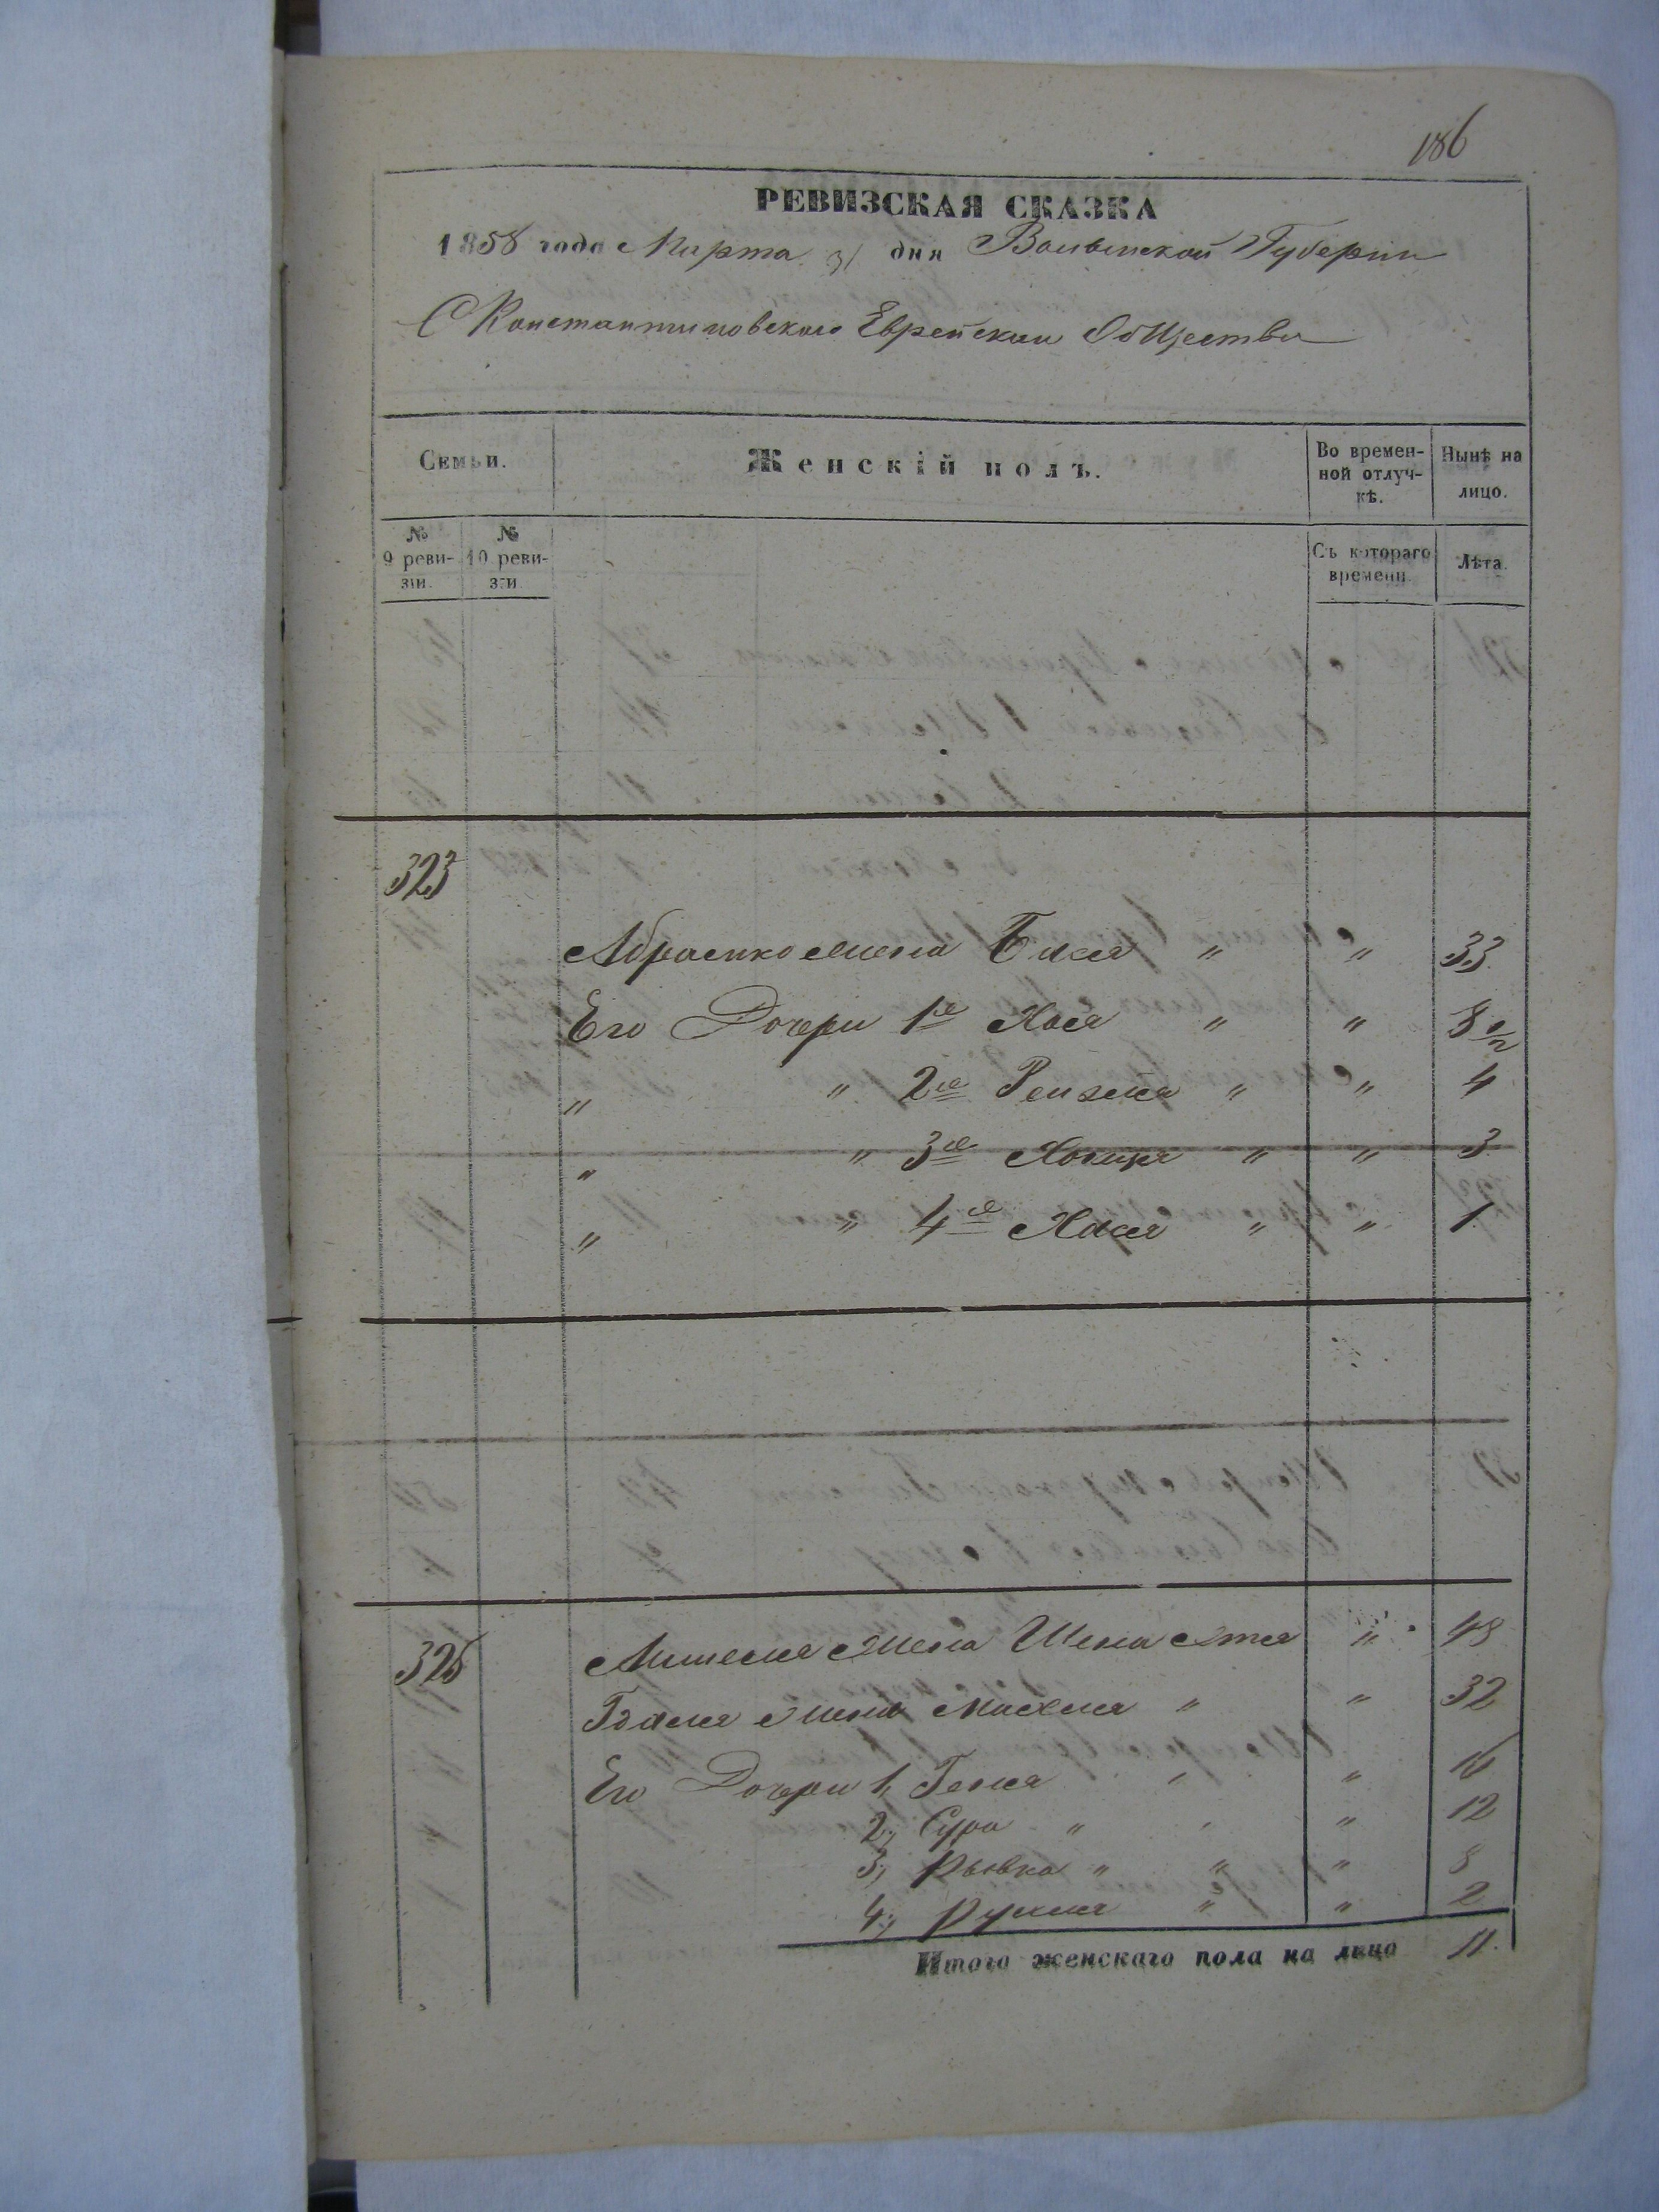 186
РЕВИЗСКАЯ СКАЗКА
1858 года Марта 31 дня Волынской Губернии
С Константиновского Еврейскаи Общества
Семьи.
Женскій полъ.
Во времен-
ной отлуч-
кѣ.
Нынѣ на
лицо.
№
9 реви-
зіи.
№
10 реви-
зіи
Съ котораго
времени.
Лѣта.
323
Абрамко жена Бася " " 33
Его Дочери 1я Хася " " 8 1/2
" " 2я Рейзя " " 4
" " 3я " " 3
" " 4я Хася " " 1
325
жена Шена " 48
жена " " 32
Его Дочери 1, Геня " " 16
2, Сура " " " 12
3, Рывка " " " 8
4, " " 2
Итого женскаго пола на лицо 11.